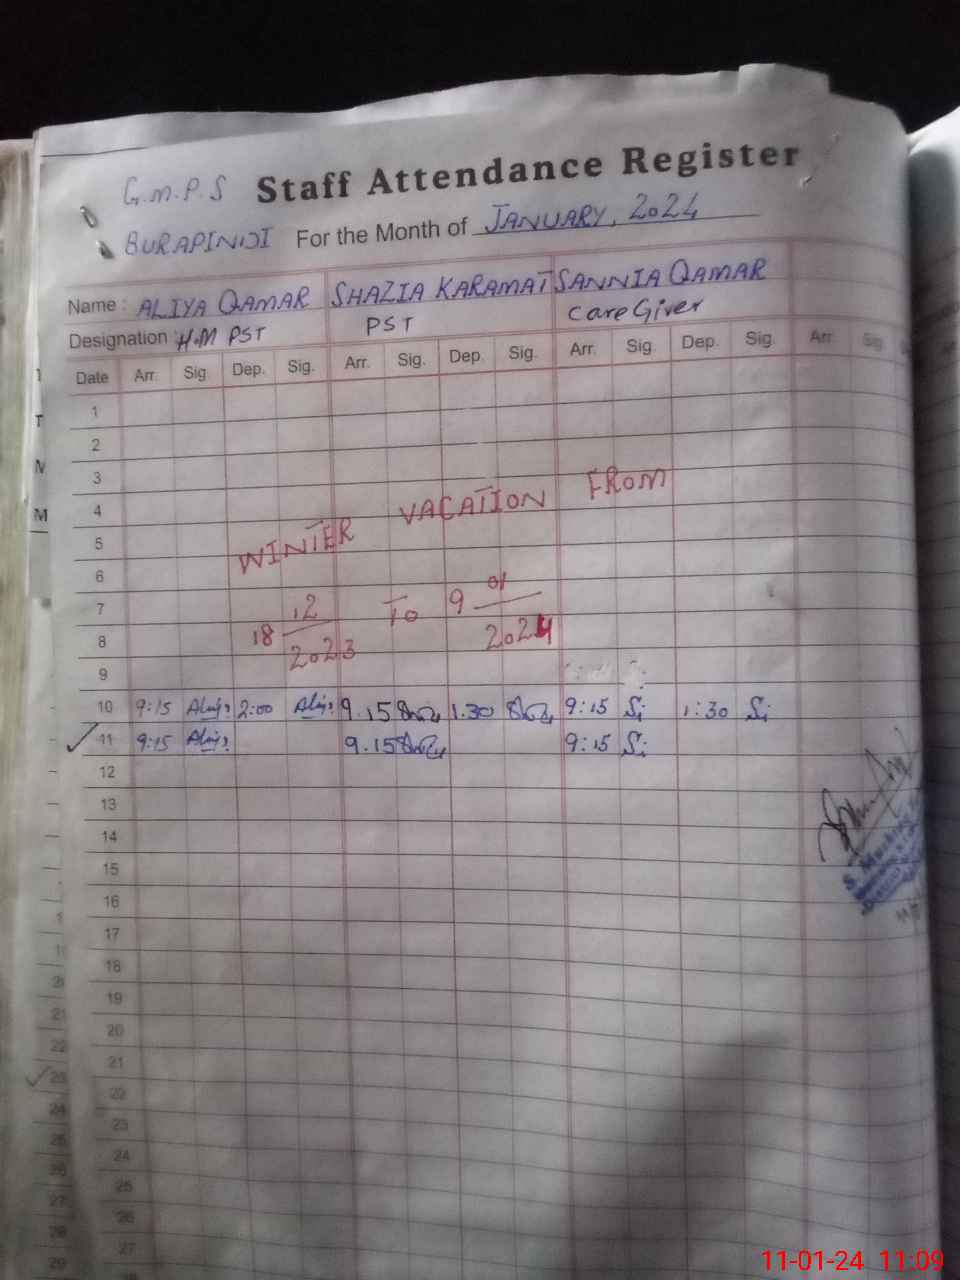 G.M.P.S Staff Attendance Register
BURAPINDI For the Month of JANUARY, 2024
Name : ALIYA QAMAR SHAZIA KARAMAT SANNIA QAMAR
Designation H.M PST PST Care Giver
Date Arr. Sig Dep. Sig. Arr. Sig. Dep. Sig. Arr. Sig. Dep. Sig. Arr. Sig
1
2
3
4
WINTER VACATION FROM
5
6
7
18 12/2023 To 9 01/2024
8
9
10 9:15 2:00 9.15 1.30 9:15 Si 1:30 Si
11 9:15 9.15 9:15 Si
12
13
14
15
16
17
18
19
20
21
22
23
24
25
26
27
11-01-24 11:09